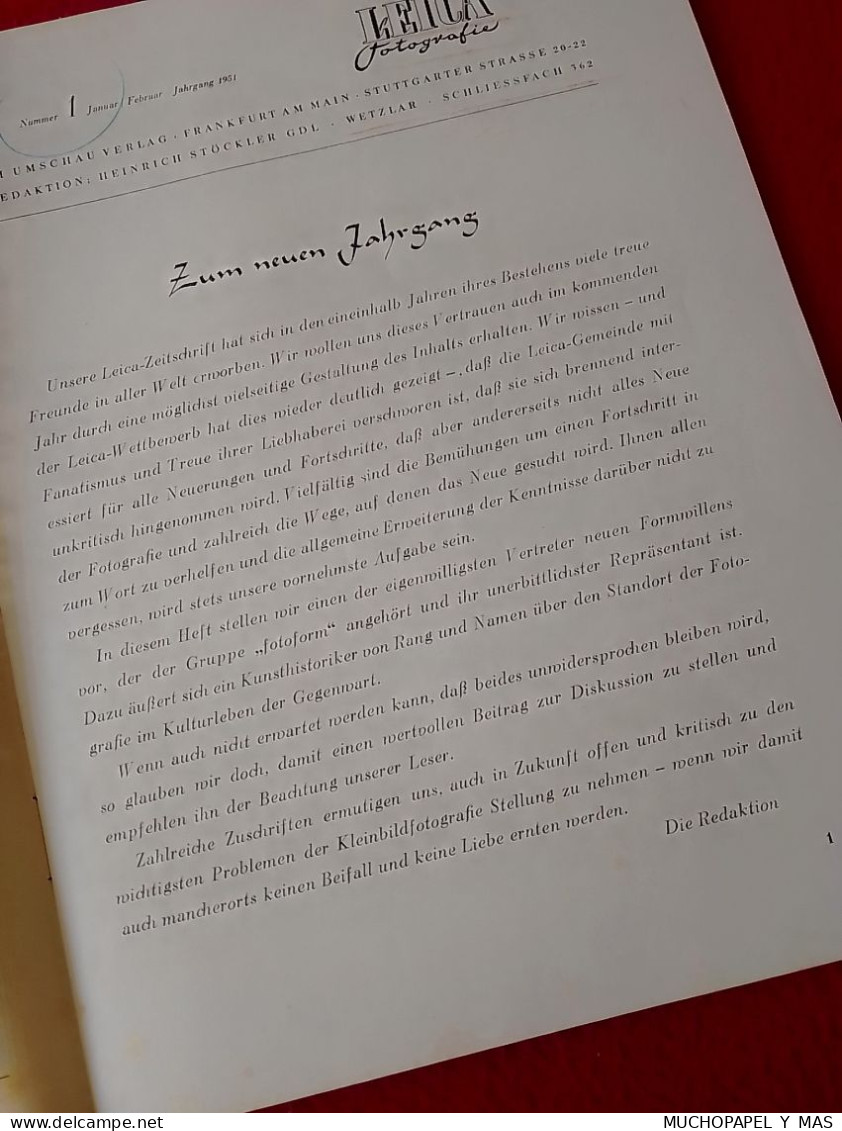 LEICA
Fotografie
Nummer 1 Januar/Februar Jahrgang 1951
UMSCHAU VERLAG · FRANKFURT AM MAIN · STUTTGARTER STRASSE 20-22
EDAKTION: HEINRICH STÖCKLER GDL · WETZLAR · SCHLIESSFACH 362
Zum neuen Jahrgang
Unsere Leica-Zeitschrift hat sich in den eineinhalb Jahren ihres Bestehens viele treue
Freunde in aller Welt erworben. Wir wollen uns dieses Vertrauen auch im kommenden
Jahr durch eine möglichst vielseitige Gestaltung des Inhalts erhalten. Wir wissen – und
der Leica-Wettbewerb hat dies wieder deutlich gezeigt –, daß die Leica-Gemeinde mit
Fanatismus und Treue ihrer Liebhaberei verschworen ist, daß sie sich brennend inter-
essiert für alle Neuerungen und Fortschritte, daß aber andererseits nicht alles Neue
unkritisch hingenommen wird. Vielfältig sind die Bemühungen um einen Fortschritt in
der Fotografie und zahlreich die Wege, auf denen das Neue gesucht wird. Ihnen allen
zum Wort zu verhelfen und die allgemeine Erweiterung der Kenntnisse darüber nicht zu
vergessen, wird stets unsere vornehmste Aufgabe sein.
In diesem Heft stellen wir einen der eigenwilligsten Vertreter neuen Formwillens
vor, der der Gruppe „fotoform“ angehört und ihr unerbittlichster Repräsentant ist.
Dazu äußert sich ein Kunsthistoriker von Rang und Namen über den Standort der Foto-
grafie im Kulturleben der Gegenwart.
Wenn auch nicht erwartet werden kann, daß beides unwidersprochen bleiben wird,
so glauben wir doch, damit einen wertvollen Beitrag zur Diskussion zu stellen und
empfehlen ihn der Beachtung unserer Leser.
Zahlreiche Zuschriften ermutigen uns, auch in Zukunft offen und kritisch zu den
wichtigsten Problemen der Kleinbildfotografie Stellung zu nehmen – wenn wir damit
auch mancherorts keinen Beifall und keine Liebe ernten werden.
Die Redaktion
1
MUCHOPAPEL Y MAS
delcampe.net